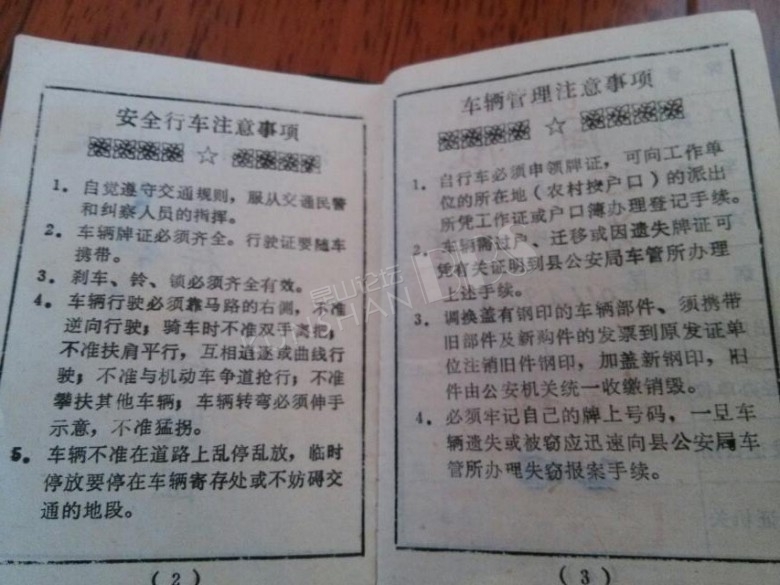 安全行车注意事项
☆
1。自觉遵守交通规则，服从交通民警
和纠察人员的指挥。
2。车辆牌证必须齐全。行驶证要随车
携带。
3。刹车、铃、锁必须齐全有效。
4。车辆行驶必须靠马路的右侧，不准
逆向行驶；骑车时不准双手离把；
不准扶肩平行，互相追逐或曲线行
驶；不准与机动车争道抢行；不准
攀扶其他车辆；车辆转弯必须伸手
示意，不准猛拐。
5。车辆不准在道路上乱停乱放，临时
停放要停在车辆寄存处或不妨碍交
通的地段。
（2）
车辆管理注意事项
☆
1。自行车必须申领牌证，可向工作单
位的所在地（农村按户口）的派出
所凭工作证或户口簿办理登记手续。
2。车辆需过户、迁移或因遗失牌证可
凭有关证明到县公安局车管所办理
上述手续。
3。调换盖有钢印的车辆部件、须携带
旧部件及新购件的发票到原发证单
位注销旧件钢印，加盖新钢印，旧
件由公安机关统一收缴销毁。
4。必须牢记自己的牌上号码，一旦车
辆遗失或被窃应迅速向县公安局车
管所办理失窃报案手续。
（3）
昆山论坛
KUNSHAN BBS
证机关